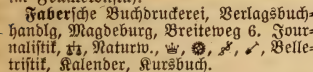 Fabersche Buchdruckerei, Verlagsbuch-
handlg, Magdeburg, Breiteweg 6. Jour-
nalistik, Naturw., Belle-
tristik, Kalender, Kursbuch.